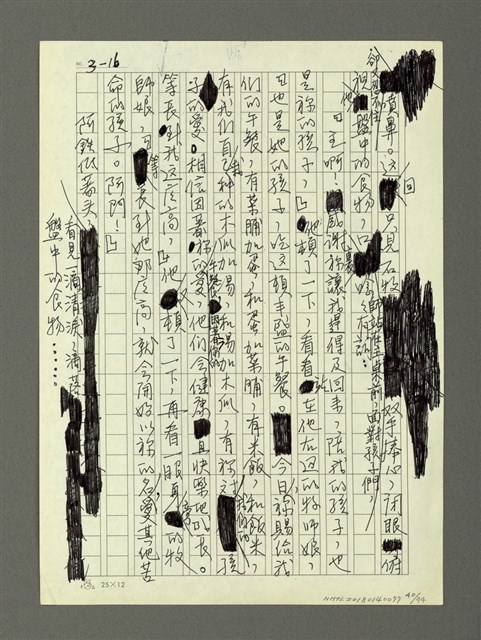 3-16
噴鼻。這回，只見石牧師站在主桌前，面對孩子們，雙手捧心，閉眼俯
祖盤中的食物，口裏唸有詞：
「主啊，感謝祢讓我趕得及回來，陪我的孩子，也
是祢的孩子，」他頓了一下，看看站在他右邊的牧師娘，
「也是她的孩子，吃這頓丰盛的午餐。今日祢賜給我
們的午餐，有菜脯加蛋，和蛋加菜脯，有米飯，和飯米，
有我們自己種的木瓜加湯，和湯加木瓜，有祢對我們的孩
子的愛。相信因著祢的愛，他們會健康且快樂地成長。
等長到我這麼高，」他頓了一下，再看一眼身旁的牧
師娘，「或等長到她那麼高，就會開始以祢的名愛其他苦
命的孩子。阿門！」
阿鉄低著頭，
看見一滴清淚，滴落
盤中的食物……。
25×12
NMTL20180140077 40/44